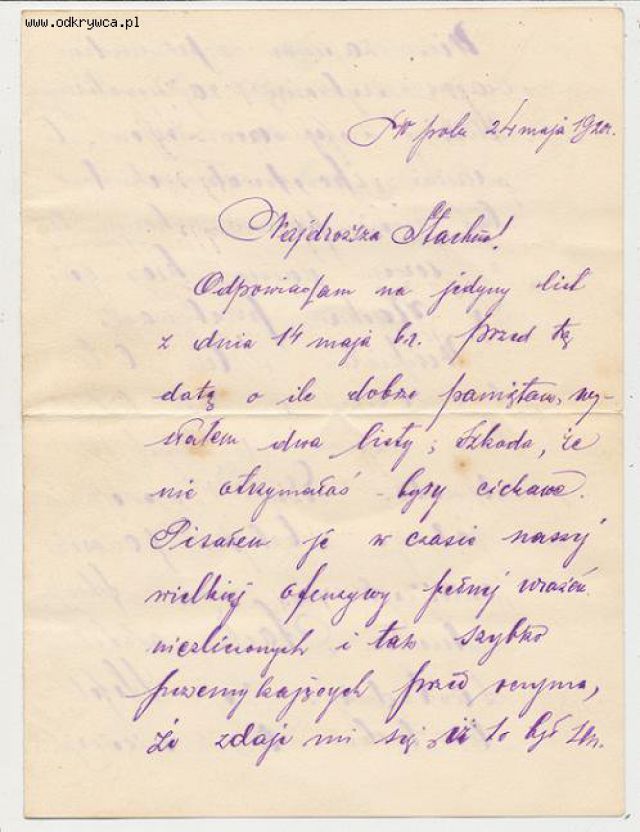 www.odkrywca.pl
W polu 24 maja 1920r.
Najdroższa Stachno!
Odpowiadam na jedyny list
z dnia 14 maja br. przed tą
datą o ile dobrze pamiętam, wy-
słałem dwa listy; szkoda, że
nie otrzymałaś - były ciekawe.
Pisałem je w czasie naszej
wielkiej ofenzywy pełnej wrażeń
niezliczonych i tak szybko
przemykających przed oczyma,
że zdaje mi się, iż to był sen.